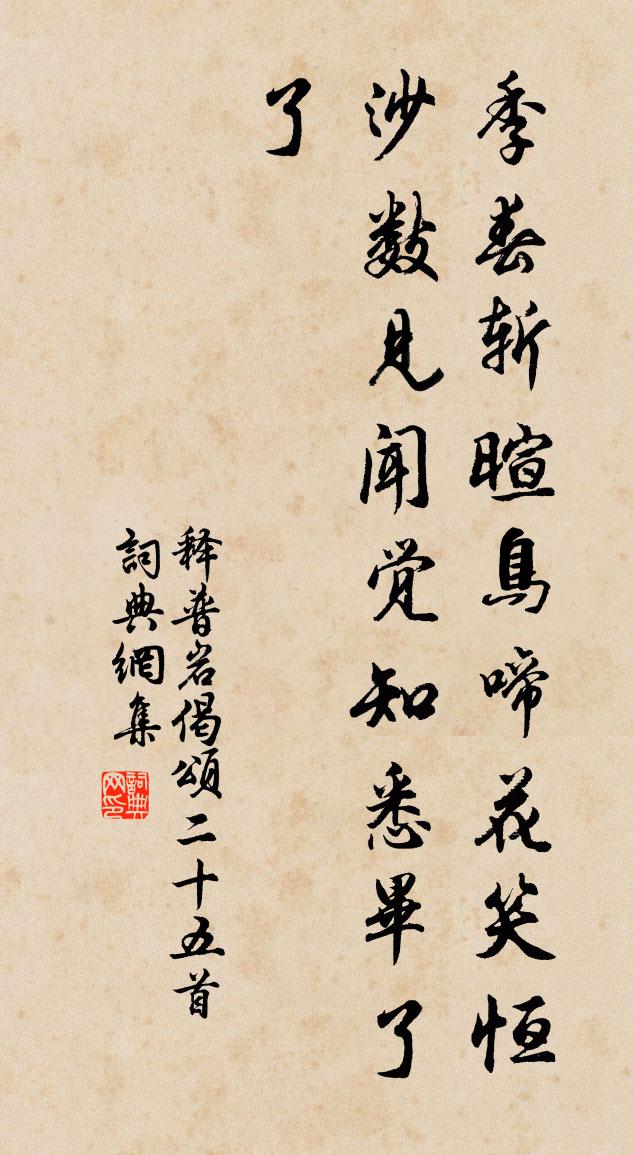 季春斩暄鳥啼花笑恒
沙数見闻觉知悉畢了
了
释普岩偈頌二十五首
詞典網集
詞典网印